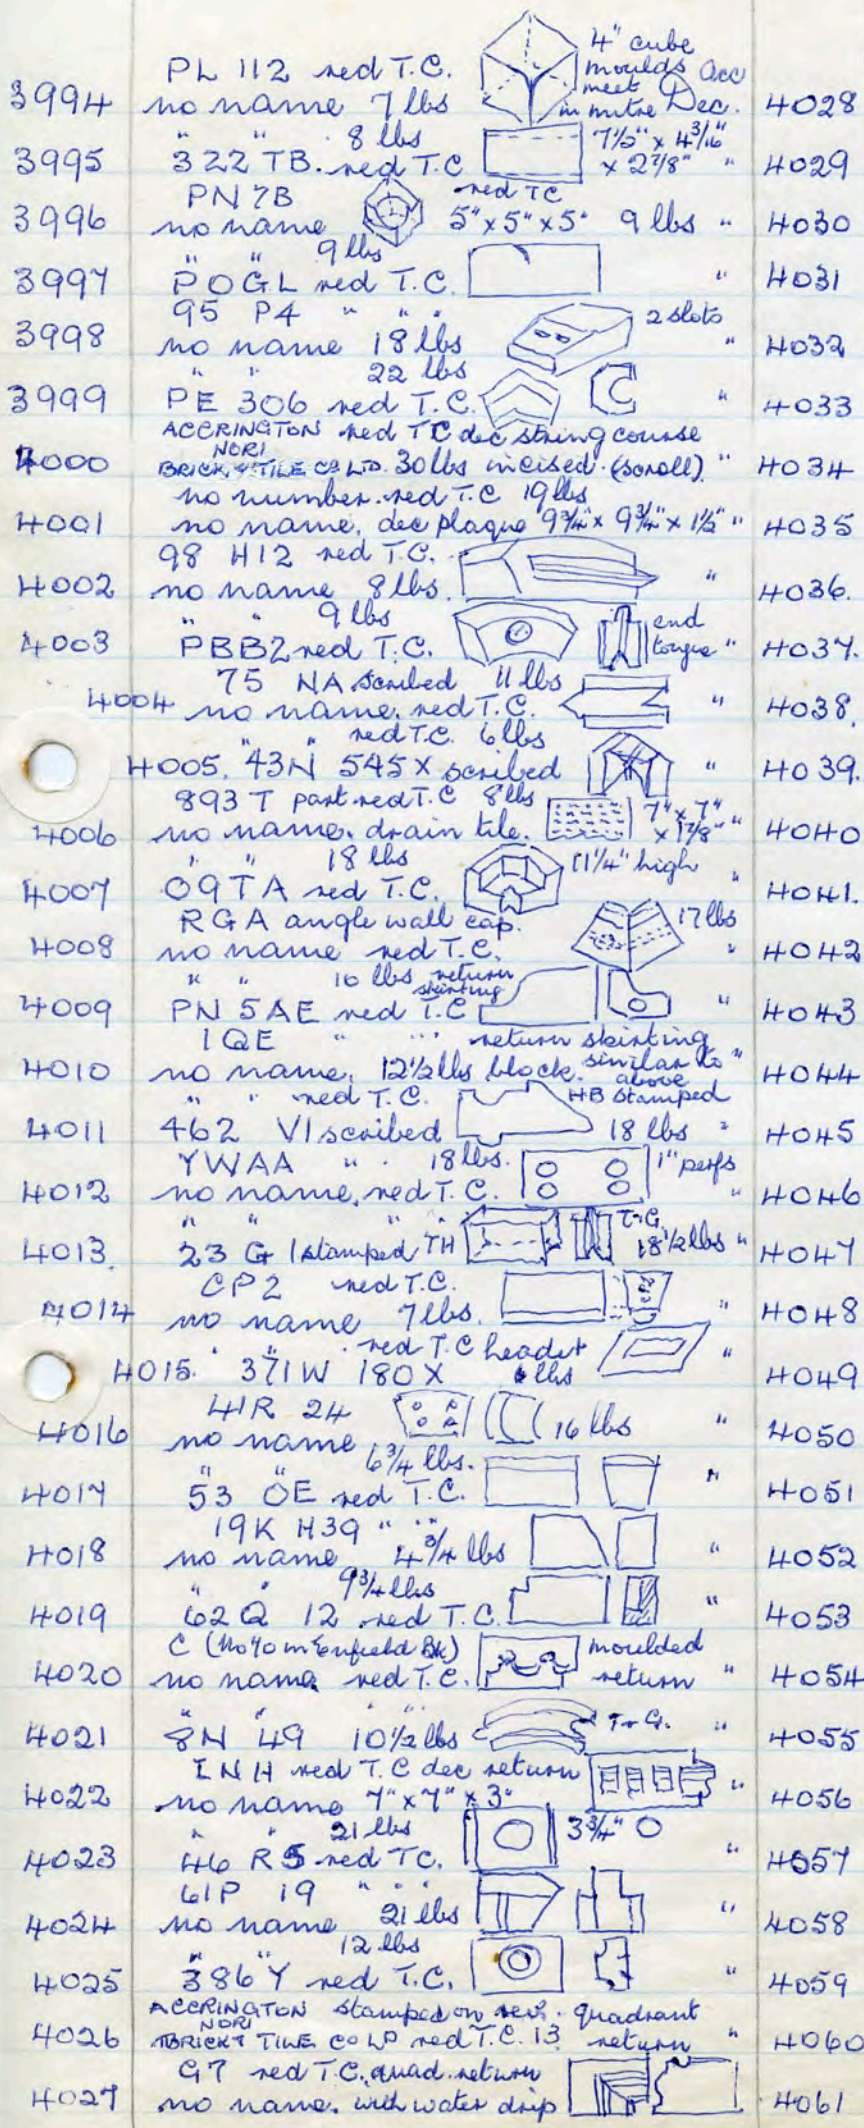 4" cube
PL 112 red T.C. moulds Acc
3994 no name 7 lbs meet in mitre Dec. 4028
" " 8 lbs 7½" x 4 3/16"
3995 322 TB. red T.C x 2 7/8" " 4029
PN 7B red TC
3996 no name 5" x 5" x 5" 9 lbs " 4030
" " 9 lbs
3997 POGL red T.C. " 4031
95 P4 " " " 2 slots
3998 no name 18 lbs " 4032
" " 22 lbs
3999 PE 306 red T.C. " 4033
ACCRINGTON red TC dec string course
NORI
4000 BRICK & TILE Co LTD. 30 lbs incised. (scroll) " 4034
no number. red T.C 19 lbs
4001 no name. dec plaque 9¾" x 9¾" x 1½" " 4035
98 H12 red T.C.
4002 no name 8 lbs. " 4036.
" " 9 lbs end
4003 PBB2 red T.C. tongue " 4037.
75 NA scribed 11 lbs
4004 no name. red T.C. " 4038.
" " red T.C. 6 lbs
4005. 43N 545 X scribed " 4039.
893 T part red T.C 8 lbs 7" x 7"
4006 no name. drain tile. x 1 7/8" " 4040
" " 18 lbs 11¼" high
4007 09TA red T.C. " 4041.
RGA angle wall cap. 17 lbs
4008 no name red T.C. " 4042
" " 10 lbs return
skirting
4009 PN 5AE red T.C " 4043
1QE " " " return skirting
4010 no name. 12½ lbs block. similar to above " 4044
" " red T.C. HB Stamped
4011 462 VI scribed 18 lbs " 4045
YWAA " . 18 lbs. 1" perfs
4012 no name. red T.C. " 4046
" " " " T&G
4013. 23 G 1 stamped TH 18½ lbs " 4047
CP2 red T.C.
4014 no name 7 lbs. " 4048
" " red T.C header
4015. 371W 180 X lbs " 4049
41R 24
4016 no name 16 lbs " 4050
" " 6¾ lbs.
4017 53 OE red T.C. " 4051
19K H39 " " "
4018 no name 4¾ lbs " 4052
" " 9¾ lbs
4019 62Q 12 red T.C. " 4053
C (No 40 in Enfield Bk) moulded
4020 no name red T.C. return " 4054
" " " "
4021 8N 49 10½ lbs T&G. " 4055
INH red T.C dec return
4022 no name 7" x 7" x 3" " 4056
" " 21 lbs 3¾" O
4023 46 R5 red TC. " 4057
61P 19 " " "
4024 no name 21 lbs " 4058
" " 12 lbs
4025 386 Y red T.C. " 4059
ACCRINGTON stamped on quadrant
NORI
4026 BRICK & TILE CO LD red T.C. 13 return " 4060
G7 red T.C. quad. return
4027 no name. with water drip 4061